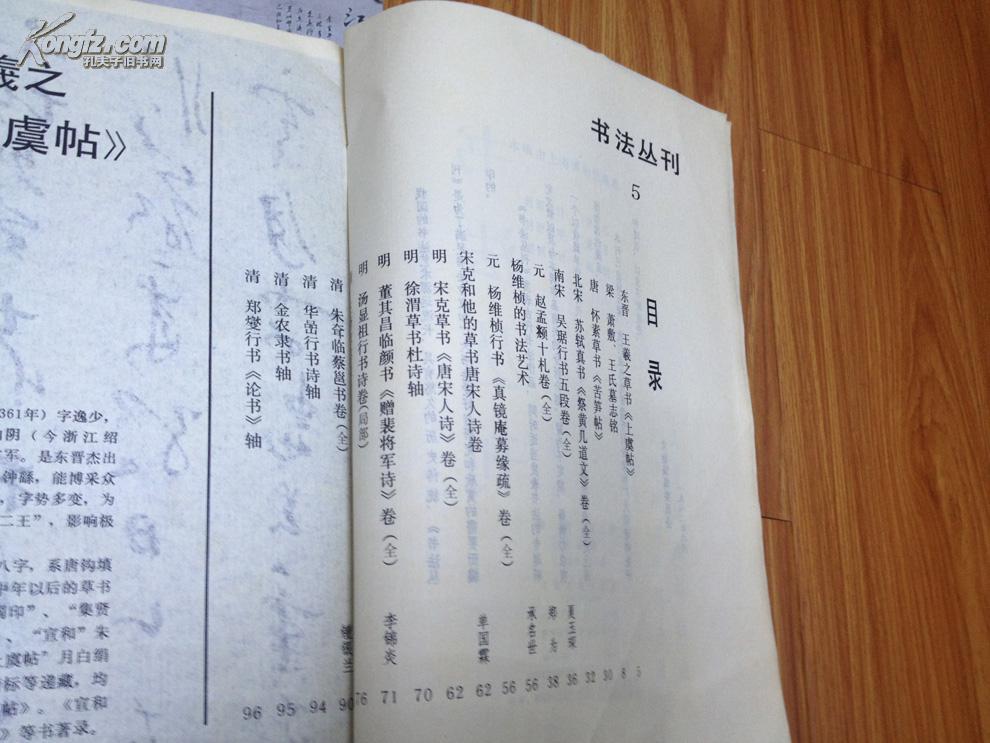 Kongfz.com
孔夫子旧书网
书法丛刊
5
目录
东晋 王羲之草书《上虞帖》 5
梁 萧敷、王氏墓志铭 8
唐 怀素草书《苦笋帖》 30
北宋 苏轼真书《祭黄几道文》卷（全） 32
南宋 吴琚行书五段卷（全） 夏玉琛 36
元 赵孟頫十札卷（全） 郑为 38
杨维桢的书法艺术 承名世 56
元 杨维桢行书《真镜庵募缘疏》卷（全） 56
宋克和他的草书唐宋人诗卷 单国霖 62
明 宋克草书《唐宋人诗》卷（全） 62
明 徐渭草书杜诗轴 70
明 董其昌临颜书《赠裴将军诗》卷（全） 李锦炎 71
明 汤显祖行书诗卷（局部） 76
清 朱耷临蔡邕书卷（全） 90
清 华嵒行书诗轴 94
清 金农隶书轴 95
清 郑燮行书《论书》轴 96
羲之
虞帖》
361年）字逸少，
山阴（今浙江绍
军。是东晋杰出
钟繇，能博采众
，字势多变，为
二王”，影响极
八字，系唐钩填
中年以后的草书
印”、“集贤
、“宣和”朱
上虞帖”月白绢
标等递藏，均
帖》。《宣和
》等书著录。